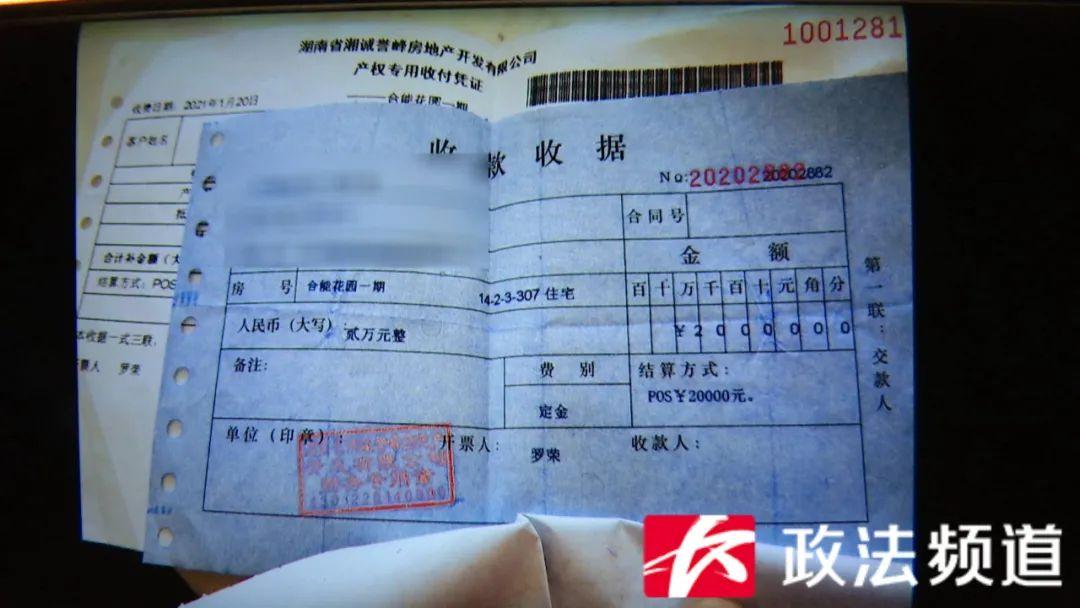 1001281
湖南省湘诚誉峰房地产开发有限公司
产权专用收付凭证
合能花园一期
收费日期: 2021年1月20日
客户姓名
合计补金额(大
结算方式: POS
本收据一式三联,
罗荣
收款收据
No:20202882 20202882
合同号
金额
房号 合能花园一期 14-2-3-307 住宅
百十万千百十元角分
人民币(大写): 贰万元整
¥2000000
备注:
费别
定金
结算方式:
POS¥20000元。
单位(印章):
开票人: 罗荣
收款人:
第一联:交款人
财务专用章
政法频道